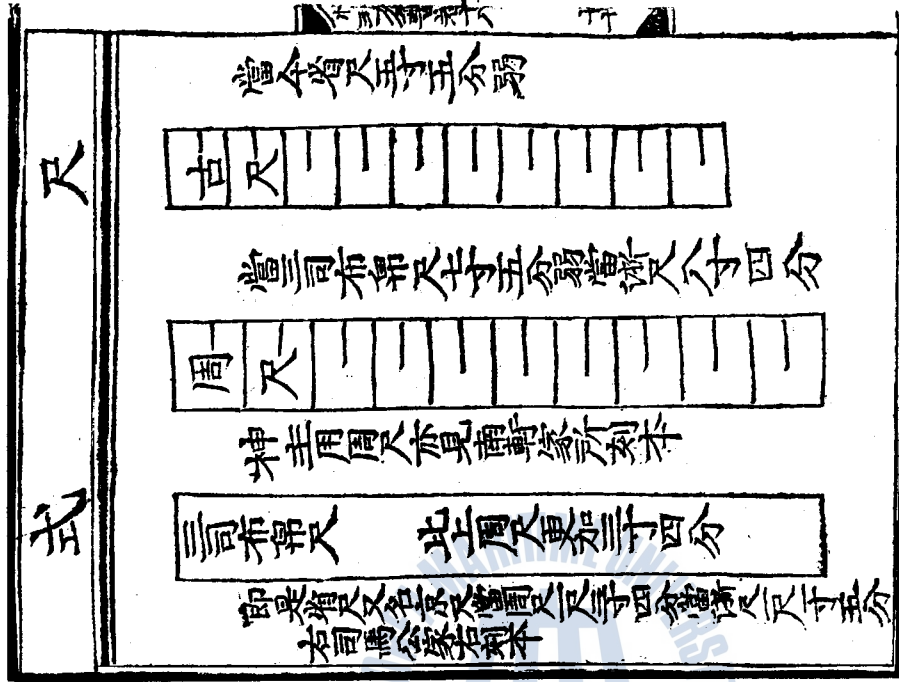 尺式
當今省尺五寸五分弱
古尺
當三司布帛尺七寸五分弱當浙尺八寸四分
周尺
神主用周尺亦見南軒家所刻本
三司布帛尺 比上周尺更加三寸四分
即是省尺又名京尺當周尺一尺三寸四分當浙尺一尺一寸五分
右司馬公家石刻本